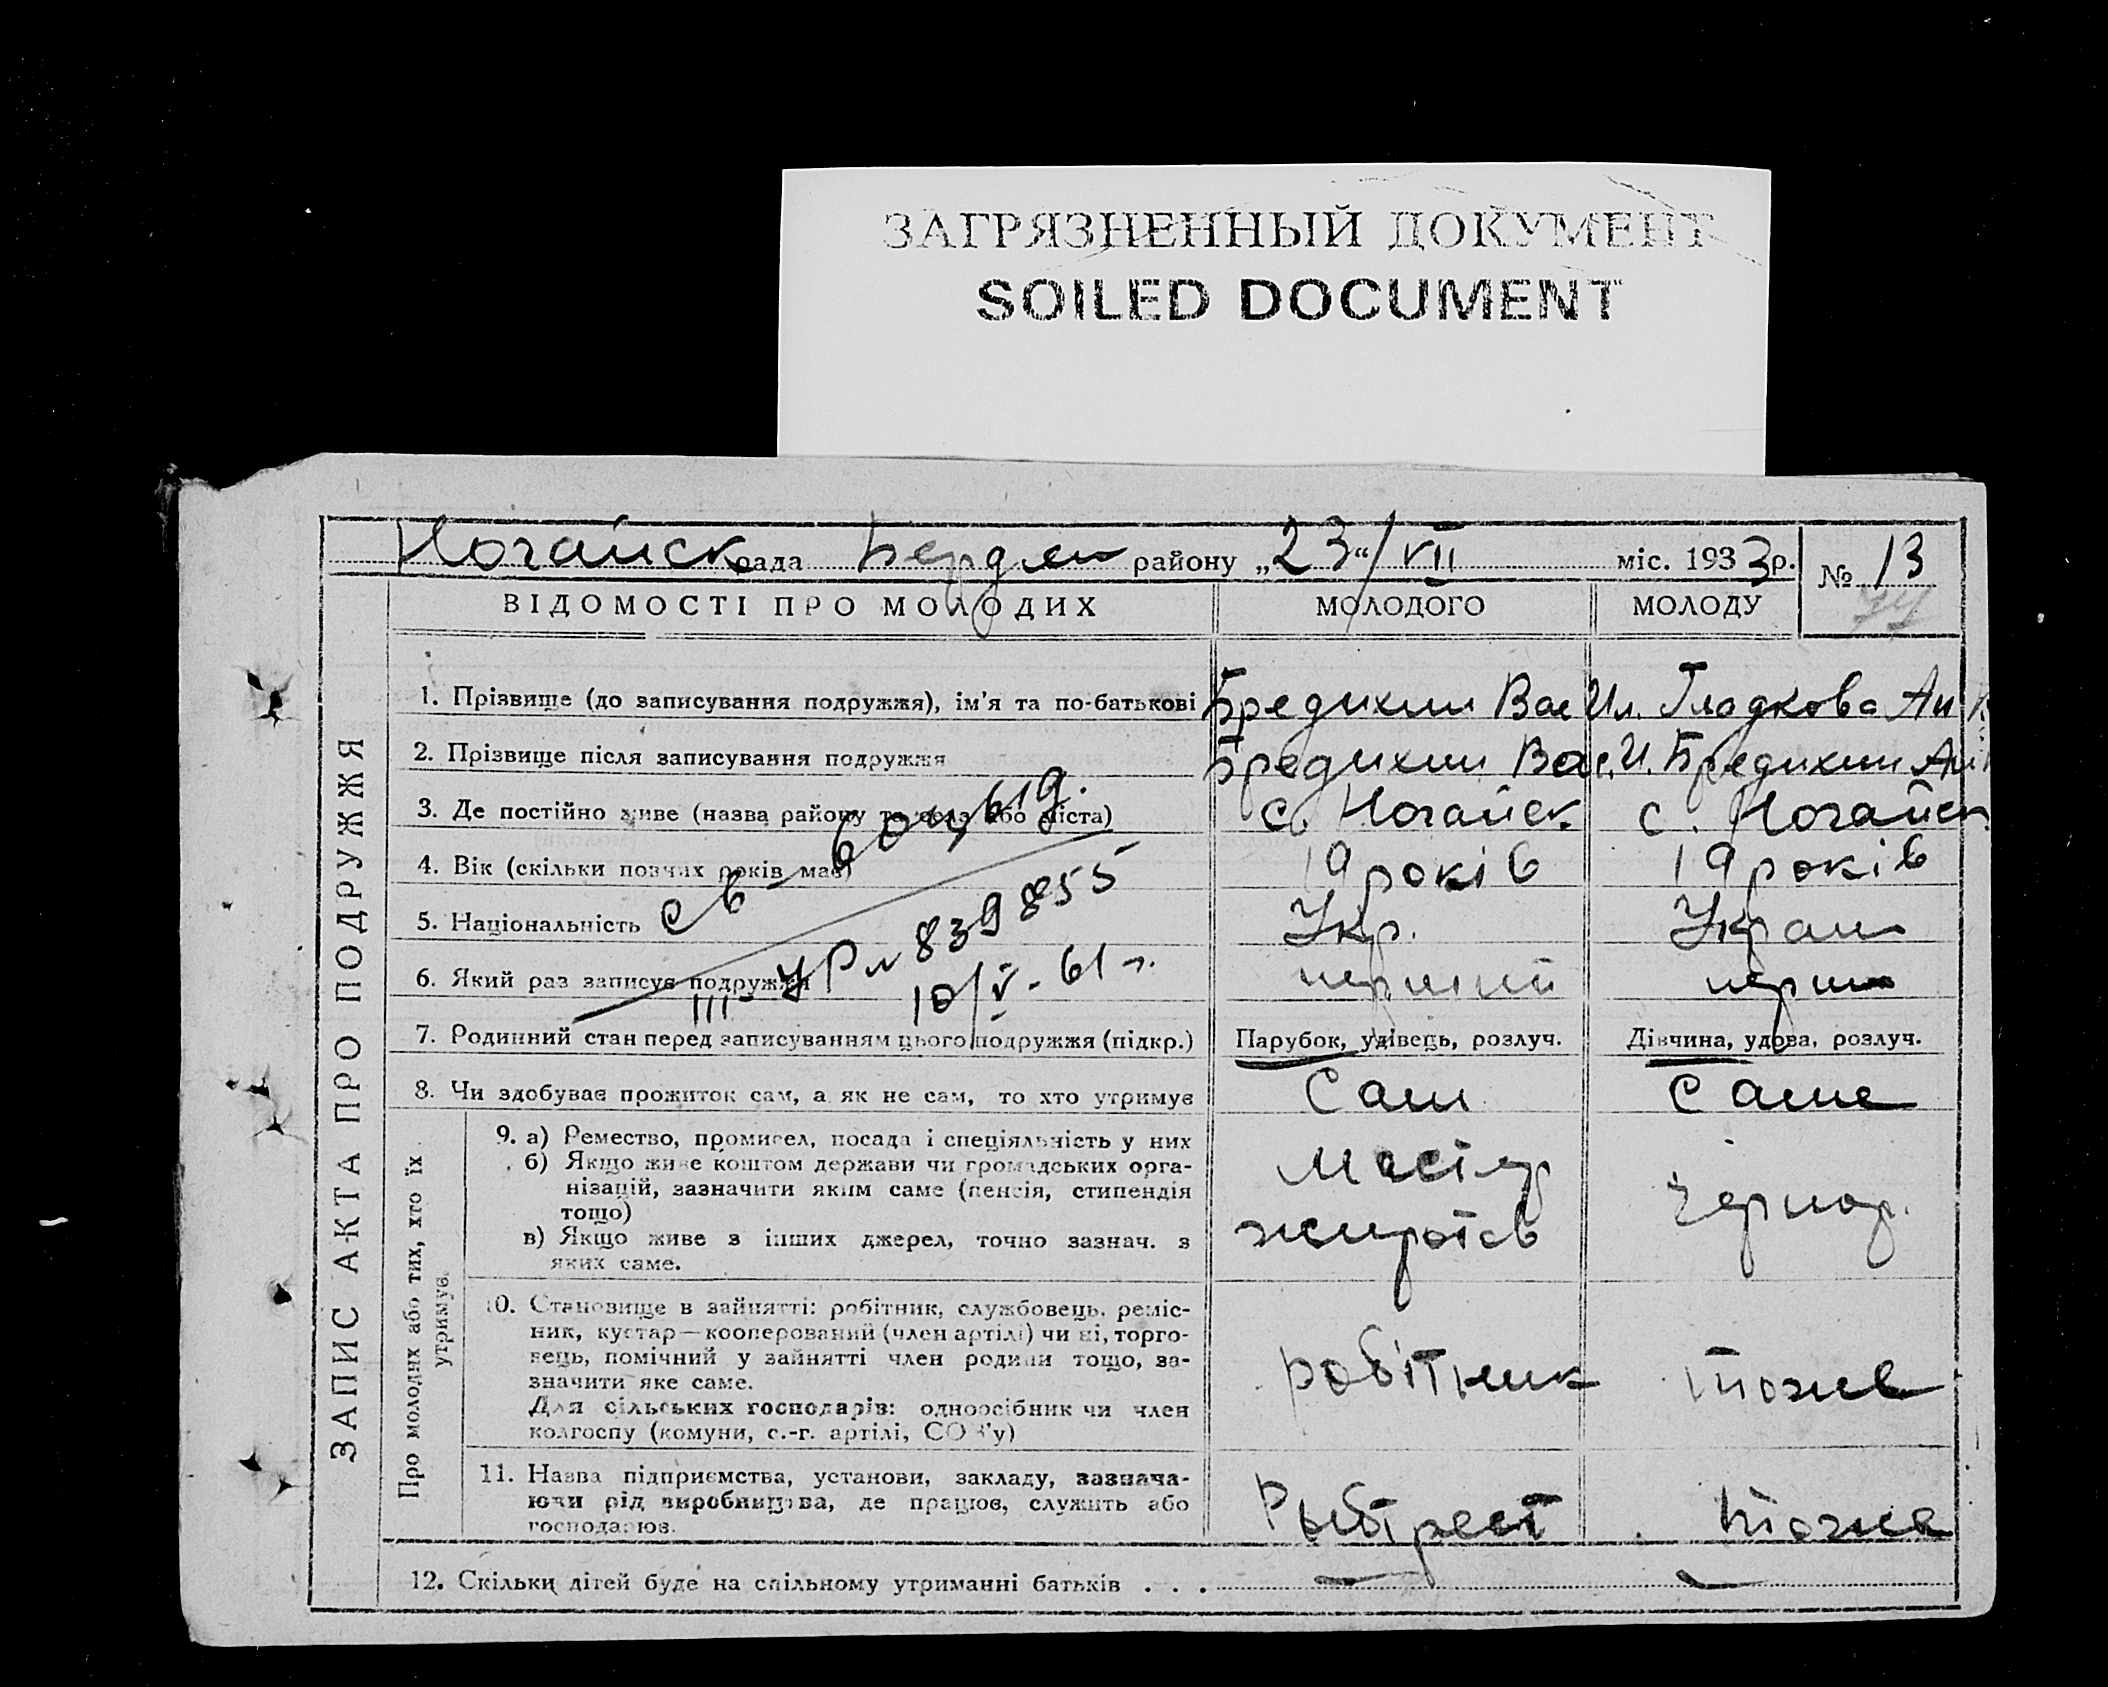 ЗАГРЯЗНЕННЫЙ ДОКУМЕНТ
SOILED DOCUMENT
Ногайск рада Бердян району „23“/VII міс. 1933р. № 13
ВІДОМОСТІ ПРО МОЛОДИХ МОЛОДОГО МОЛОДУ
ЗАПИС АКТА ПРО ПОДРУЖЖЯ
1. Прізвище (до записування подружжя), ім'я та по-батькові Бредихин Вас Ил. Гладкова Ан
2. Прізвище після записування подружжя Бредихин Вас. И. Бредихин Ан
3. Де постійно живе (назва району та села або міста) с. Ногайск с. Ногайск
4. Вік (скільки повних років має) 19 років 19 років
5. Національність Укр. Украин
6. Який раз записує подружжя перший перш
св-во выд.
III-УР № 839855
10/V-61 г.
7. Родинний стан перед записуванням цього подружжя (підкр.) Парубок, удівець, розлуч. Дівчина, удова, розлуч.
8. Чи здобуває прожиток сам, а як не сам, то хто утримує Сам Саме
Про молодих або тих, хто їх утримує.
9. а) Ремество, промисел, посада і спеціяльність у них
б) Якщо живе коштом держави чи громадських орга-
нізацій, зазначити яким саме (пенсія, стипендія
тощо)
в) Якщо живе з інших джерел, точно зазнач. з
яких саме.
Мастер
жиротов
Чернор.
10. Становище в зайнятті: робітник, службовець, реміс-
ник, кустар—кооперований (член артілі) чи ні, торго-
вець, помічний у зайнятті член родини тощо, за-
значити яке саме.
Для сільських господарів: одноосібник чи член
колгоспу (комуни, с.-г. артілі, СОЗ'у)
робітник тоже
11. Назва підприємства, установи, закладу, зазнача-
ючи рід виробництва, де працює, служить або
господарює.
Рыбтрест тоже
12. Скільки дітей буде на спільному утриманні батьків . . . — —